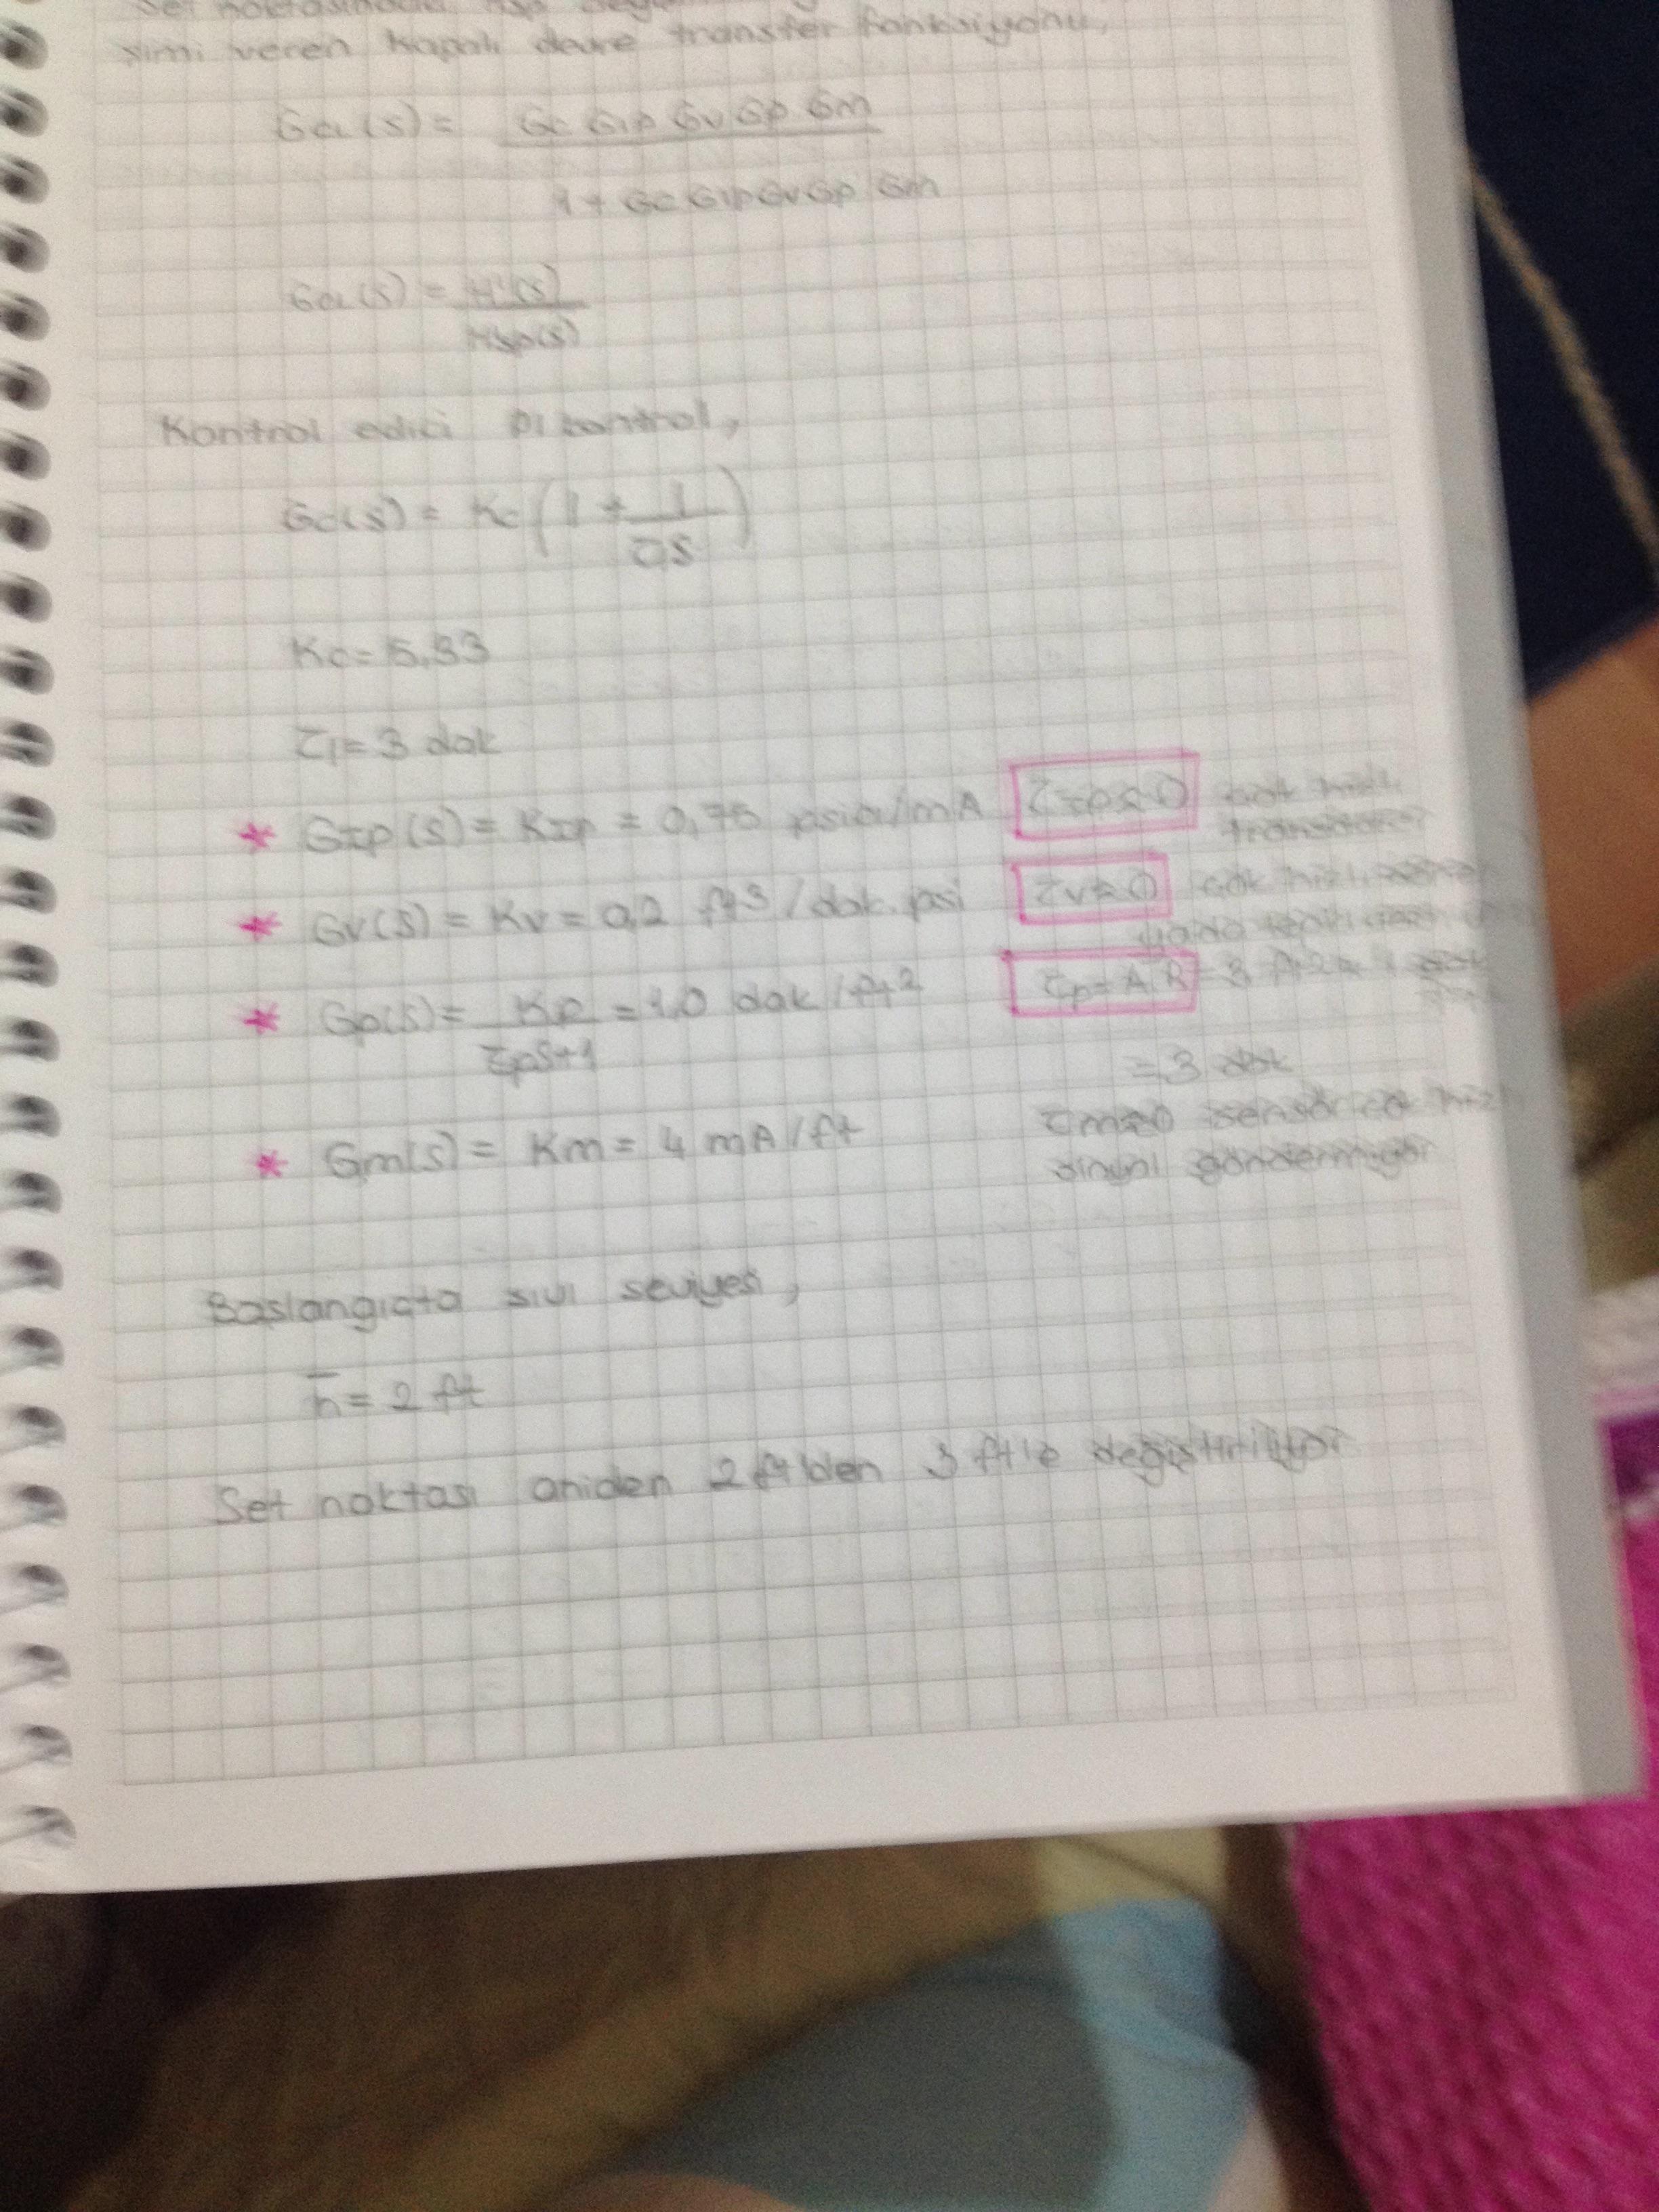 Set noktasındaki
simi veren kapalı devre transfer fonksiyonu,
Gcl(s) = Gc GIp Gv Gp Gm
1 + Gc GIp Gv Gp Gm
Gcl(s) = H'(s)
Hsp(s)
Kontrol edici PI kontrol,
Gc(s) = Kc (1 + 1
τIs)
Kc = 5,33
τI = 3 dak
* GIp(s) = KIp = 0,75 psia/mA τIp≈0 çok hızlı
transducer
* Gv(s) = Kv = 0,2 ft3/dak.psi τv≈0 çok hızlı
* Gp(s) = Kp = 1,0 dak/ft2 τp = A.R = 3 ft2 * 1 dak
τps+1
= 3 dak
* Gm(s) = Km = 4 mA/ft τm≈0 sensör çok hızlı
sinyal gönderiyor
Başlangıçta sıvı seviyesi,
h̄ = 2 ft
Set noktası aniden 2 ft'den 3 ft'e değiştiriliyor